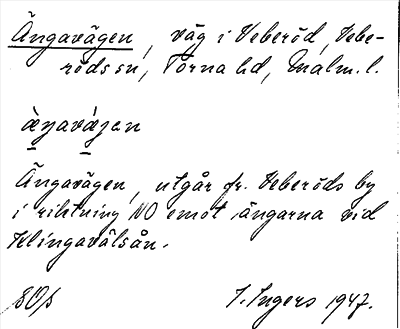 Ängavägen, väg i Veberöd, Vebe-
rödssn, Torna hd, Malm. l.
Ängavägen, utgår fr. Veberöds by
i riktning NO emot ängarna vid
Klingavälsån.
I. Ingers 1947.